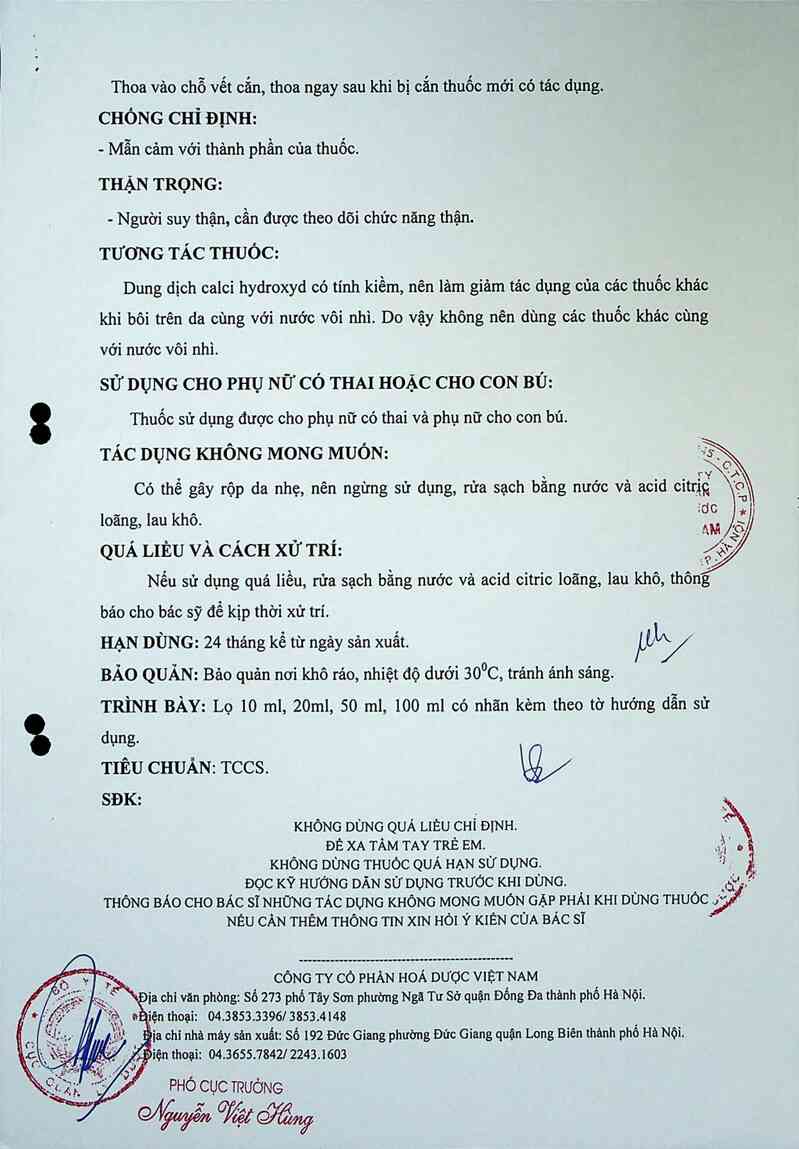 Thoa vào chỗ vết cắn, thoa ngay sau khi bị cắn thuốc mới có tác dụng.
CHỐNG CHỈ ĐỊNH:
- Mẫn cảm với thành phần của thuốc.
THẬN TRỌNG:
- Người suy thận, cần được theo dõi chức năng thận.
TƯƠNG TÁC THUỐC:
Dung dịch calci hydroxyd có tính kiềm, nên làm giảm tác dụng của các thuốc khác
khi bôi trên da cùng với nước vôi nhì. Do vậy không nên dùng các thuốc khác cùng
với nước vôi nhì.
SỬ DỤNG CHO PHỤ NỮ CÓ THAI HOẶC CHO CON BÚ:
Thuốc sử dụng được cho phụ nữ có thai và phụ nữ cho con bú.
TÁC DỤNG KHÔNG MONG MUỐN:
Có thể gây rộp da nhẹ, nên ngừng sử dụng, rửa sạch bằng nước và acid citric
loãng, lau khô.
QUÁ LIỀU VÀ CÁCH XỬ TRÍ:
Nếu sử dụng quá liều, rửa sạch bằng nước và acid citric loãng, lau khô, thông
báo cho bác sỹ để kịp thời xử trí.
HẠN DÙNG: 24 tháng kể từ ngày sản xuất.
BẢO QUẢN: Bảo quản nơi khô ráo, nhiệt độ dưới 30⁰C, tránh ánh sáng.
TRÌNH BÀY: Lọ 10 ml, 20ml, 50 ml, 100 ml có nhãn kèm theo tờ hướng dẫn sử
dụng.
TIÊU CHUẨN: TCCS.
SĐK:
KHÔNG DÙNG QUÁ LIỀU CHỈ ĐỊNH.
ĐỂ XA TẦM TAY TRẺ EM.
KHÔNG DÙNG THUỐC QUÁ HẠN SỬ DỤNG.
ĐỌC KỸ HƯỚNG DẪN SỬ DỤNG TRƯỚC KHI DÙNG.
THÔNG BÁO CHO BÁC SĨ NHỮNG TÁC DỤNG KHÔNG MONG MUỐN GẶP PHẢI KHI DÙNG THUỐC
NẾU CẦN THÊM THÔNG TIN XIN HỎI Ý KIẾN CỦA BÁC SĨ
CÔNG TY CỔ PHẦN HOÁ DƯỢC VIỆT NAM
Địa chỉ văn phòng: Số 273 phố Tây Sơn phường Ngã Tư Sở quận Đống Đa thành phố Hà Nội.
Điện thoại: 04.3853.3396/ 3853.4148
Địa chỉ nhà máy sản xuất: Số 192 Đức Giang phường Đức Giang quận Long Biên thành phố Hà Nội.
Điện thoại: 04.3655.7842/ 2243.1603
BỘ Y TẾ
PHÓ CỤC TRƯỞNG
Nguyễn Việt Hùng